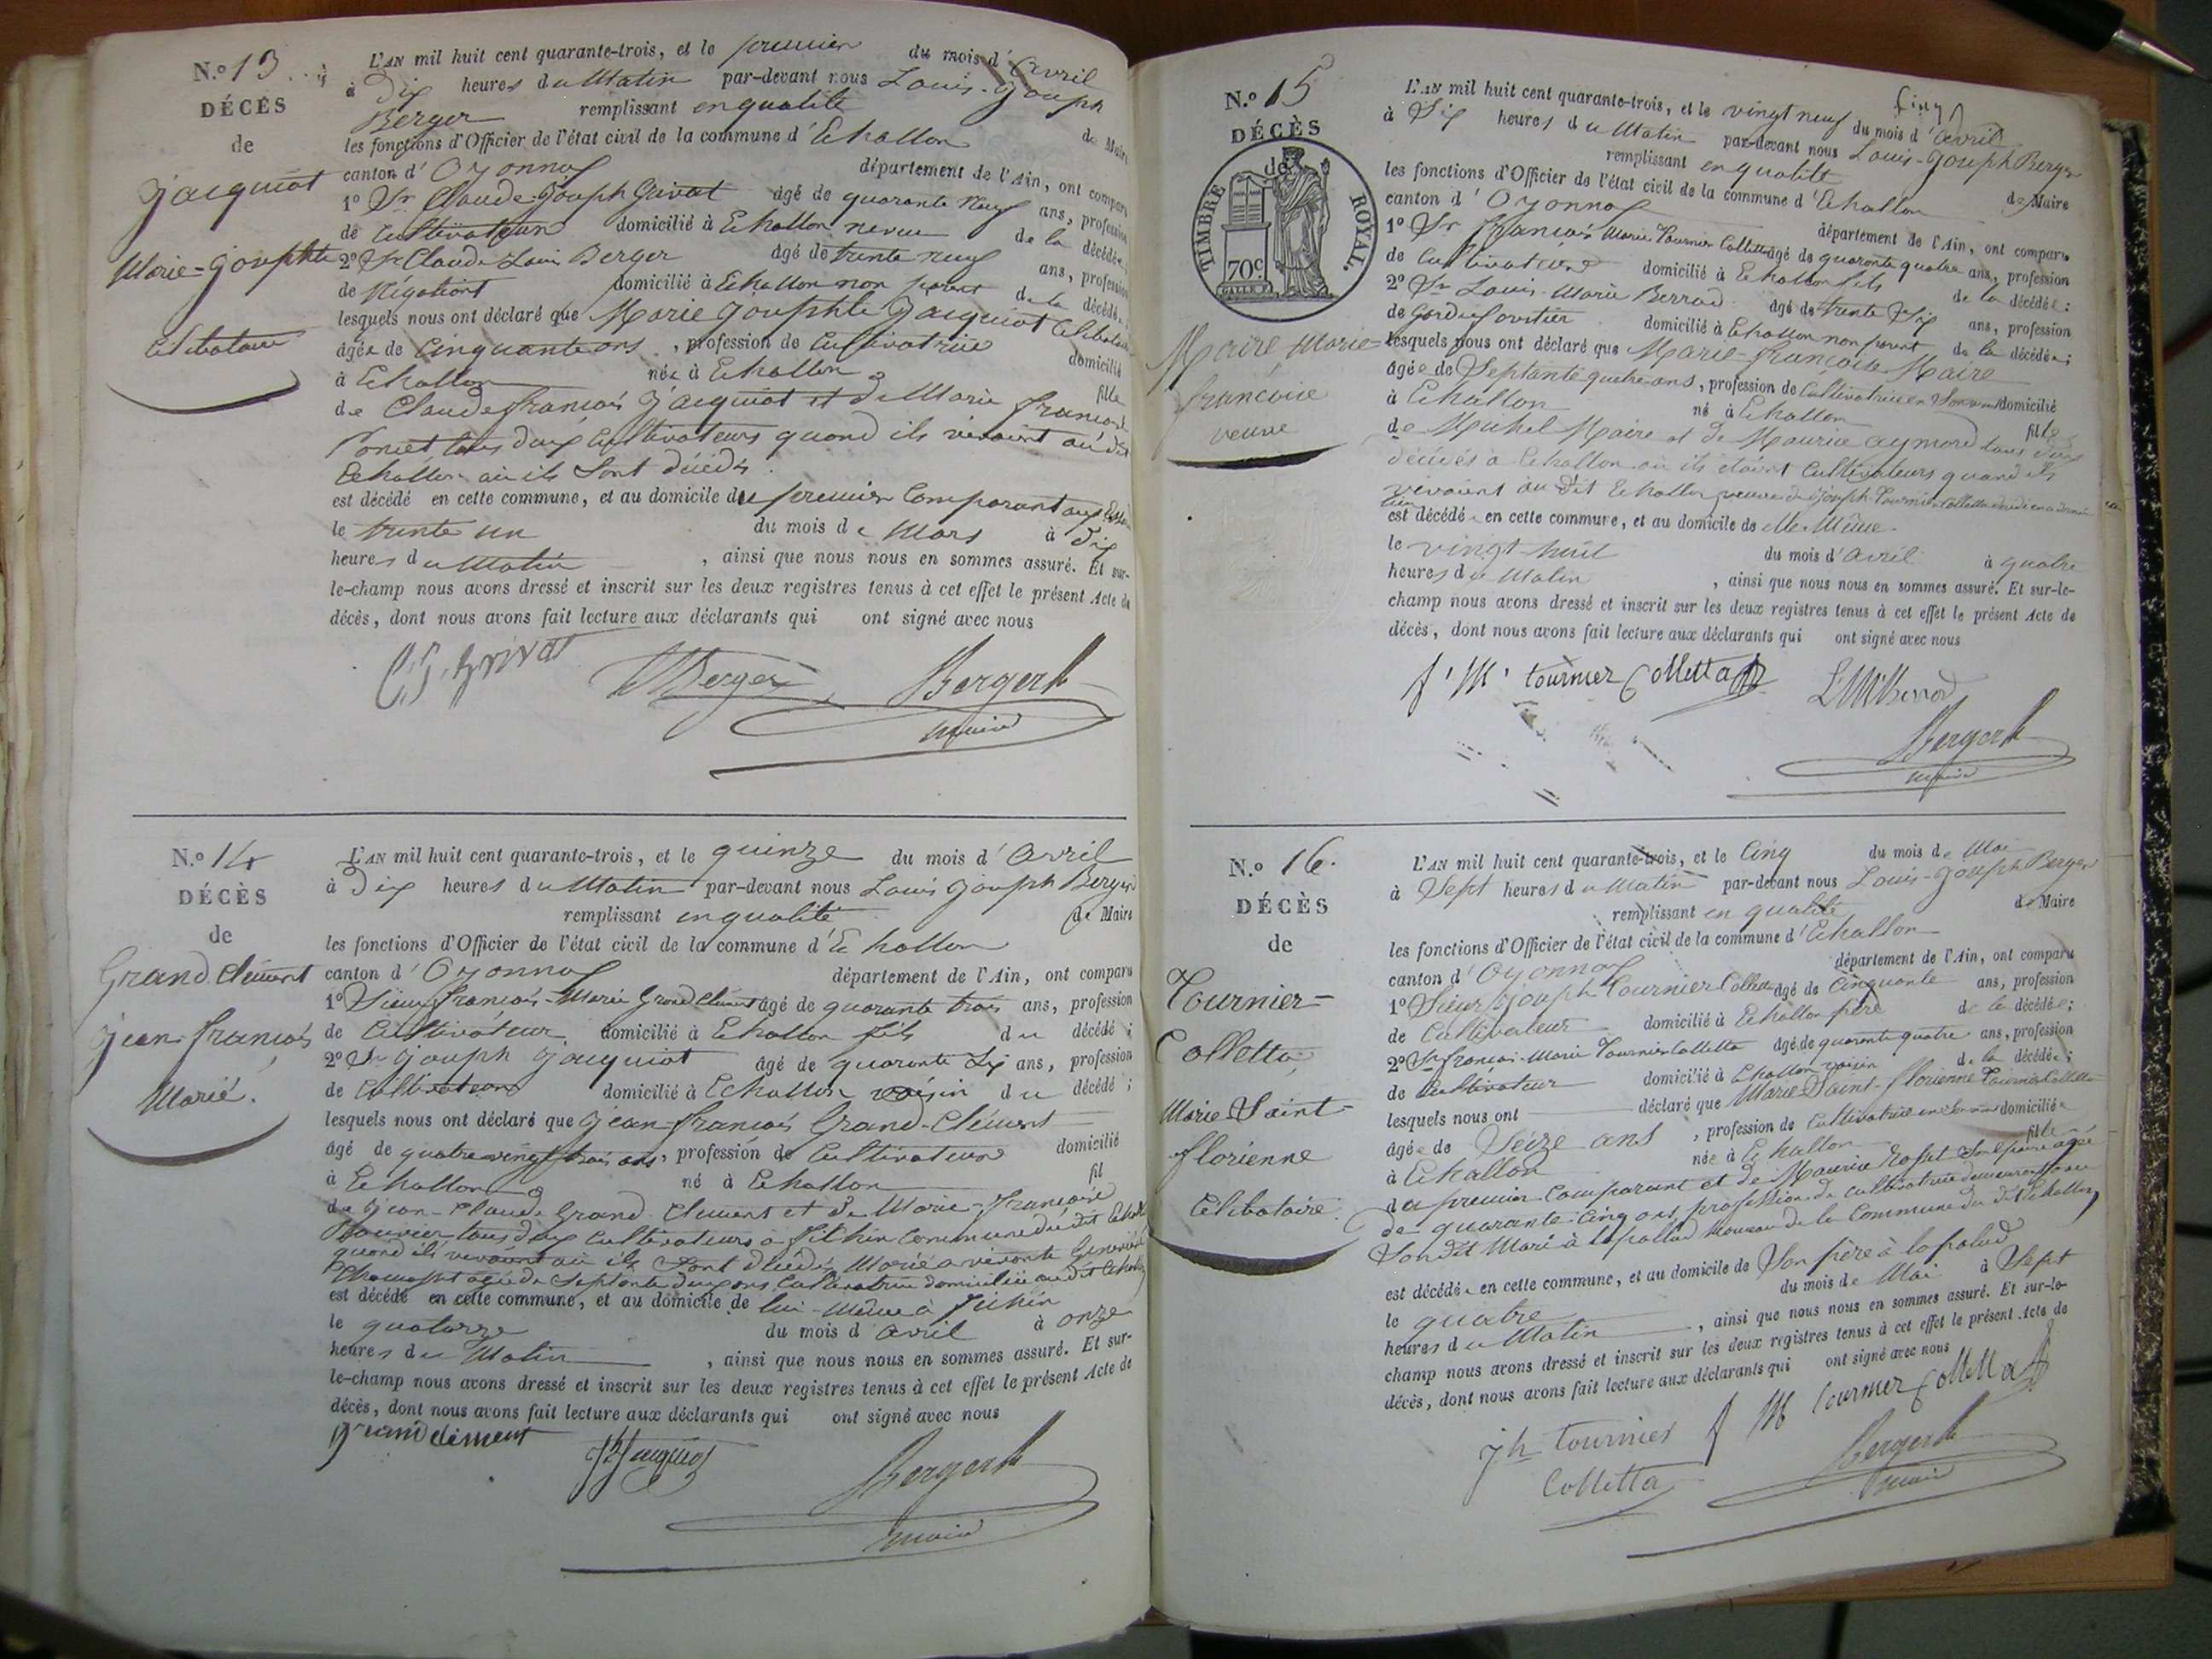 N.º 13
DÉCÈS
de
Jacquiot
Marie-Josephte
Célibataire
L'AN mil huit cent quarante-trois, et le premier du mois d'avril
à Dix heures du Matin par-devant nous Louis-Joseph
Berger remplissant en qualité de Maire
les fonctions d'Officier de l'état civil de la commune d'Echallon
canton d'Oyonnax département de l'Ain, ont comparu
1º Sr Claude-Joseph Grivat âgé de quarante neuf ans, profession
de Cultivateur domicilié à Echallon neveu de la décédée;
2º Sr Claude Louis Berger âgé de trente neuf ans, profession
de Négotiant domicilié à Echallon non parent de la décédée;
lesquels nous ont déclaré que Marie Josephte Jacquiot Célibataire
âgée de Cinquante ans, profession de Cultivatrice domicilié
à Echallon née à Echallon fille
de Claude françois Jacquiot et de Marie françoise
Poncet tous deux Cultivateurs quand ils vivaient au dit
Echallon où ils sont décédés.
est décédé en cette commune, et au domicile du premier Comparant
le trente un du mois de Mars à Dix
heures du Matin, ainsi que nous nous en sommes assuré. Et sur-
le-champ nous avons dressé et inscrit sur les deux registres tenus à cet effet le présent Acte de
décès, dont nous avons fait lecture aux déclarants qui ont signé avec nous
C. J. Grivat Berger Berger
maire
N.º 14
DÉCÈS
de
Grand Clément
Jean-françois
Marié.
L'AN mil huit cent quarante-trois, et le quinze du mois d'Avril
à Dix heures du Matin par-devant nous Louis Joseph Berger
remplissant en qualité de Maire
les fonctions d'Officier de l'état civil de la commune d'Echallon
canton d'Oyonnax département de l'Ain, ont comparu
1º Sieur françois-Marie Grand Clément âgé de quarante trois ans, profession
de Cultivateur domicilié à Echallon fils du décédé;
2º Sr Joseph Jacquiot âgé de quarante Six ans, profession
de Cultivateur domicilié à Echallon voisin du décédé;
lesquels nous ont déclaré que Jean-françois Grand-Clément
âgé de quatre vingt trois ans, profession de Cultivateur domicilié
à Echallon né à Echallon fil
de Jean-Claude Grand Clément et de Marie-françoise
Bouvier tous deux Cultivateurs à Commune du dit Echallon
quand ils vivaient où ils sont décédés Marié
âgée de Septante deux ans Cultivatrice domiciliée au dit Echallon
est décédé en cette commune, et au domicile de lui-même à
le quatorze du mois d'avril à onze
heures du Matin, ainsi que nous nous en sommes assuré. Et sur-
le-champ nous avons dressé et inscrit sur les deux registres tenus à cet effet le présent Acte de
décès, dont nous avons fait lecture aux déclarants qui ont signé avec nous
Grand clement Jh Jacquiot Berger
maire
N.º 15
DÉCÈS
de
TIMBRE ROYAL.
70c
Maire Marie-
françoise
veuve
L'AN mil huit cent quarante-trois, et le vingt neuf du mois d'avril
à Six heures du Matin par-devant nous Louis-Joseph Berger
remplissant en qualité de Maire
les fonctions d'Officier de l'état civil de la commune d'Echallon
canton d'Oyonnax département de l'Ain, ont comparu
1º Sr françois Marie Tournier Colletta âgé de quarante quatre ans, profession
de Cultivateur domicilié à Echallon fils de la décédée;
2º Sr Louis-Marie Berrod âgé de trente Six ans, profession
de Garde forestier domicilié à Echallon non parent de la décédée;
lesquels nous ont déclaré que Marie-françoise Maire
âgée de Septante quatre ans, profession de Cultivatrice domicilié
à Echallon né à Echallon fille
de Michel Maire et de Maurise aymard tous deux
décédés à Echallon où ils étaient Cultivateurs quand ils
vivaient au dit Echallon veuve de Joseph Tournier Colletta
est décédée en cette commune, et au domicile de elle même
le vingt-huit du mois d'avril à quatre
heures du Matin, ainsi que nous nous en sommes assuré. Et sur-le-
champ nous avons dressé et inscrit sur les deux registres tenus à cet effet le présent Acte de
décès, dont nous avons fait lecture aux déclarants qui ont signé avec nous
f. M. tournier Colletta L M Berrod
Berger
maire
N.º 16.
DÉCÈS
de
Tournier-
Colletta,
Marie Saint-
florienne
Célibataire
L'AN mil huit cent quarante-trois, et le Cinq du mois de Mai
à Sept heures du Matin par-devant nous Louis-Joseph Berger
remplissant en qualité de Maire
les fonctions d'Officier de l'état civil de la commune d'Echallon
canton d'Oyonnax département de l'Ain, ont comparu
1º Sieur Joseph Tournier Colletta âgé de Cinquante ans, profession
de Cultivateur domicilié à Echallon père de la décédée;
2º Sr françois-Marie Tournier Colletta âgé de quarante quatre ans, profession
de Cultivateur domicilié à Echallon voisin de la décédée;
lesquels nous ont déclaré que Marie Saint-florienne Tournier Colletta
âgée de Seize ans, profession de Cultivatrice domiciliée
à Echallon née à Echallon fille
du premier Comparant et de Maurise Rosset Son épouse agée
de quarante-Cinq ans, profession de cultivatrice demeurant avec
Son dit Mari à la pallud hameau de la Commune du dit Echallon,
est décédée en cette commune, et au domicile de Son père à la palud
le quatre du mois de Mai à Sept
heures du Matin, ainsi que nous nous en sommes assuré. Et sur-le-
champ nous avons dressé et inscrit sur les deux registres tenus à cet effet le présent Acte de
décès, dont nous avons fait lecture aux déclarants qui ont signé avec nous
Jh tournier f M tournier Colletta
Colletta Berger
maire